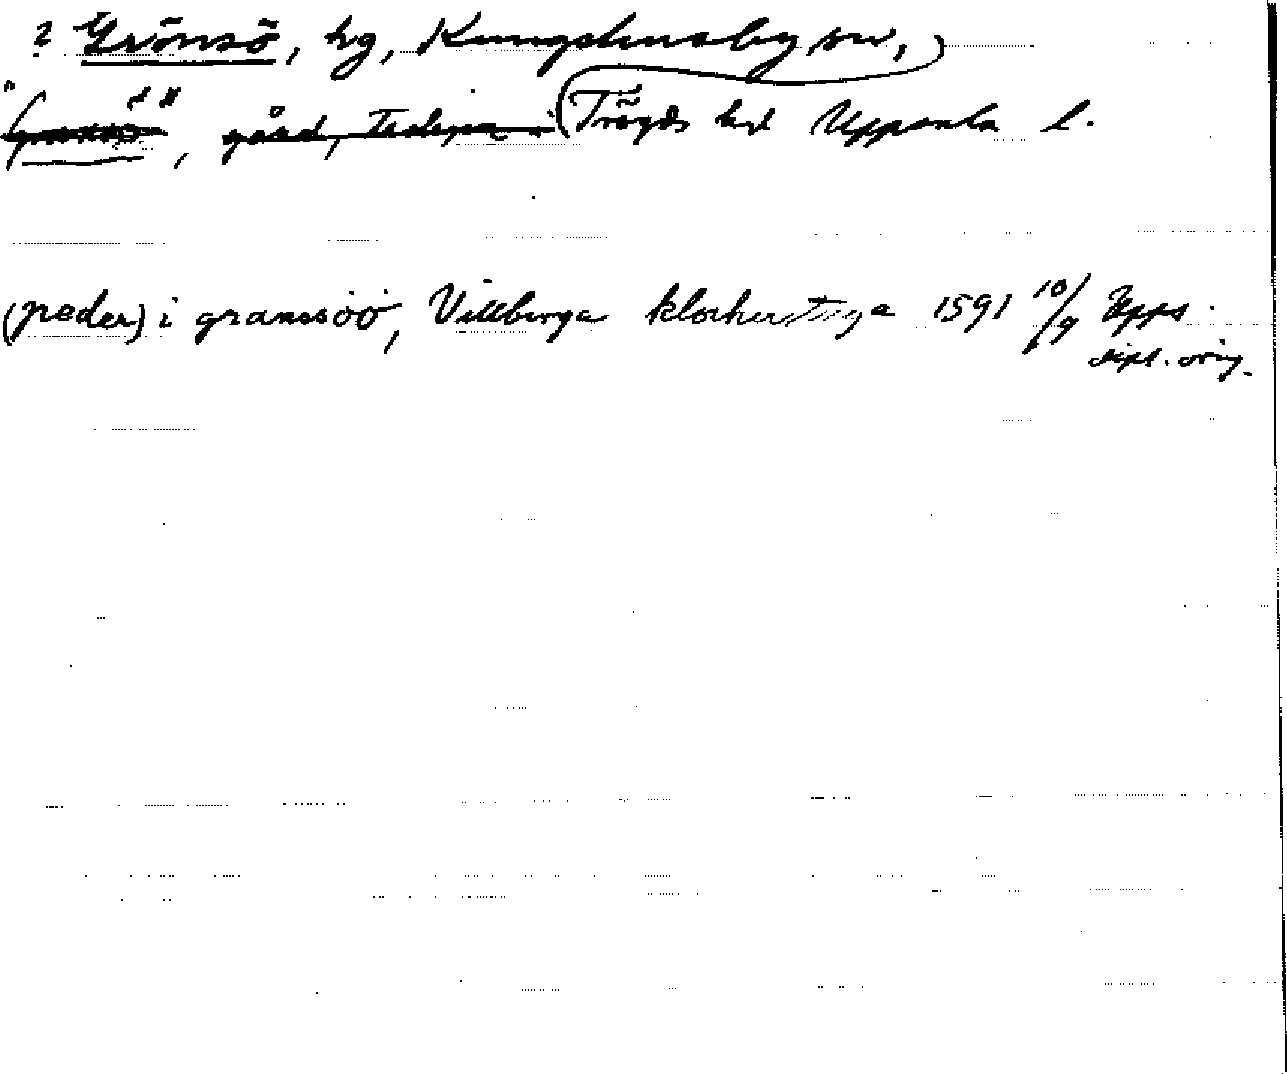 ? Grönsö, hg, Kungshusby sn,
gård, Tedspa i Trögds hd Uppsala l.
(peder) i granssöö, Villberga klockerstuga 1591 10/9 Upps.
dipl. orig.